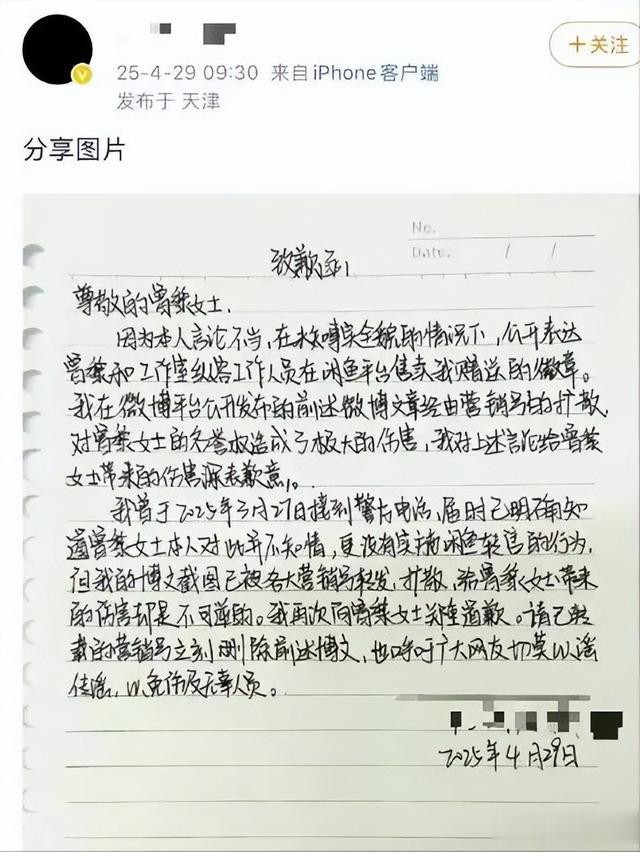 +关注
25-4-29 09:30 来自 iPhone客户端
发布于 天津
分享图片
No.
Date. / /
致歉函
尊敬的曾黎女士,
因为本人言论不当,在未搞完全貌的情况下,公开表达
曾黎和工作室纵容工作人员在闲鱼平台售卖我赠送的徽章。
我在微博平台公开发布的前述微博文章经由营销号的扩散,
对曾黎女士的名誉权造成了极大的伤害,我对上述言论给曾黎
女士带来的伤害深表歉意。
我曾于2025年3月27日接到警方电话,届时已明确知
道曾黎女士本人对此并不知情,更没有实施闲鱼转售的行为,
但我的博文截图已被各大营销号转发,扩散,给曾黎女士带来
的伤害却是不可逆的。我再次向曾黎女士郑重道歉。请已转
载的营销号立刻删除前述博文,也呼吁广大网友切莫以谣
传谣,以免伤及无辜人员。
2025年4月29日